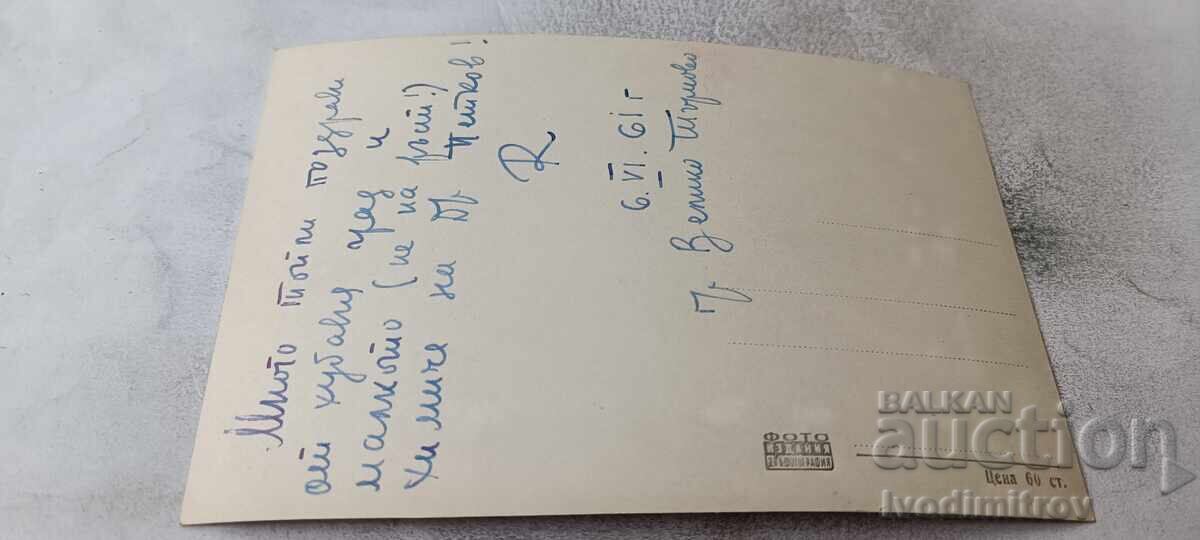 Много топли поздрави
от хубавия град и
малкото (не на ръст!)
химиче на Др Петков!
R
6.VI.61 г
гр. Велико Търново
ФОТО
ИЗДАНИЯ
Цена 60 ст.
BALKAN
auction
Ivodimitrov